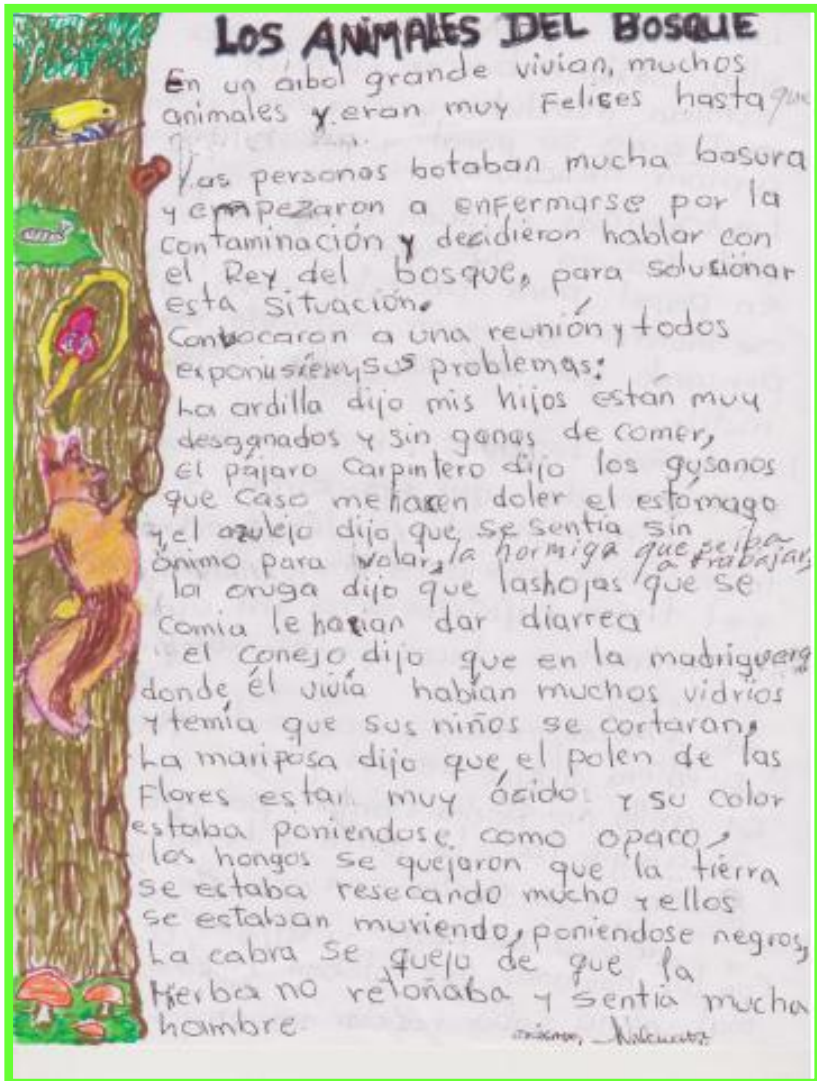 LOS ANIMALES DEL BOSQUE
En un árbol grande vivian, muchos
animales y eran muy Felices hasta que
las personas botaban mucha basura
y empezaron a enfermarse por la
contaminación y decidieron hablar con
el Rey del bosque, para solusionar
esta situación.
Convocaron a una reunión y todos
sus problemas:
La ardilla dijo mis hijos están muy
desganados y sin ganas de comer,
el pájaro Carpintero dijo los gusanos
que caso me hacen doler el estómago
y el azulejo dijo que se sentía sin
ánimo para volar, la hormiga que se iba a trabajar,
la oruga dijo que las hojas que se
comia le hacian dar diarrea
el conejo dijo que en la madriguera
donde él vivía habían muchos vidrios
y temía que sus niños se cortaran,
La mariposa dijo que el polen de las
Flores estan muy ácidos y su color
estaba poniendose como opaco,
los hongos se quejaron que la tierra
se estaba resecando mucho y ellos
se estaban muriendo, poniendose negros,
La cabra se quejo de que la
Hierba no retoñaba y sentia mucha
hambre